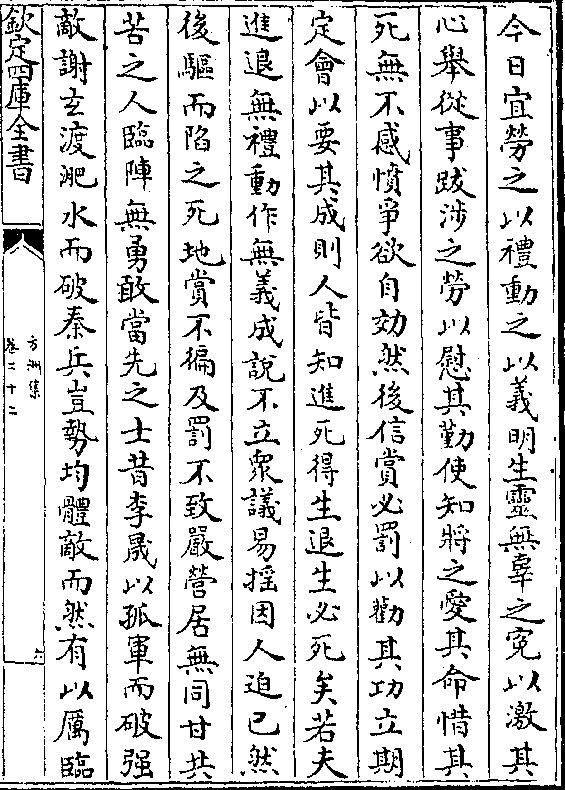 今日宜勞之以禮動之以義明生靈無辜之冤以激其
心舉從事跋涉之勞以慰其勤使知將之愛其命惜其
死無不感憤爭欲自効然後信賞必罰以勸其功立期
定會以要其成則人皆知進死得生退生必死矣若夫
進退無禮動作無義成說不立衆議易揺因人迫已然
後驅而陷之死地賞不徧及罰不致嚴營居無同甘共
苦之人臨陣無勇敢當先之士昔李晟以孤軍而破强
敵謝玄渡淝水而破秦兵豈勢均體敵而然有以厲臨
欽定四庫全書
方洲集
卷二十二
六